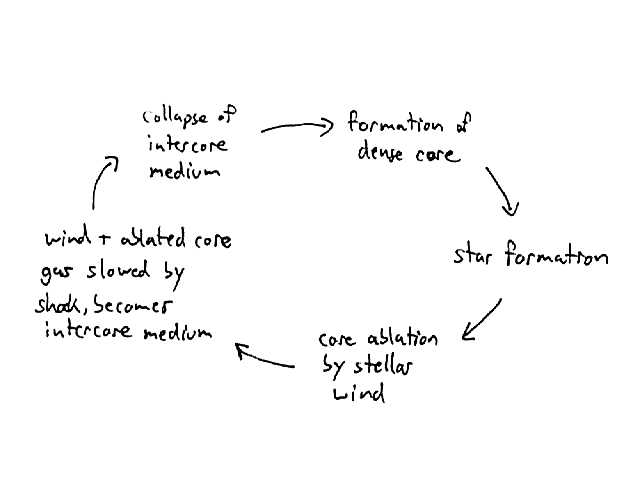 collapse of
intercore
medium
formation of
dense core
star formation
core ablation
by stellar
wind
wind + ablated core
gas slowed by
shock, becomes
intercore medium